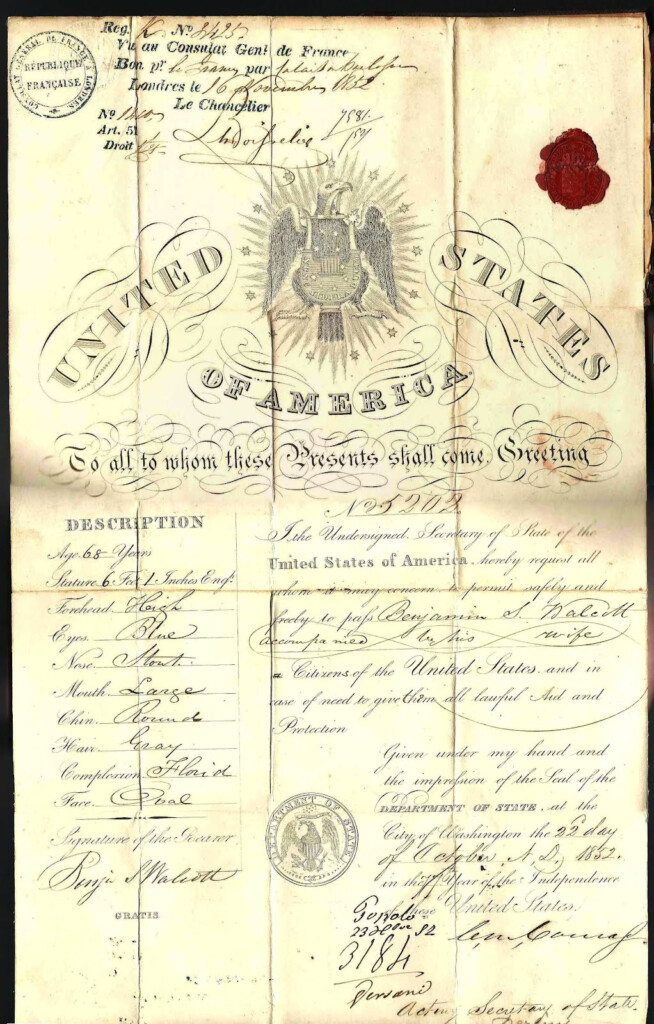 CONSULAT GENERAL DE FRANCE A LONDRES
RÉPUBLIQUE
FRANÇAISE
Reg. K Nº 2425
Vu au Consulat Genl de France
Bon pr par
Londres le 16 Novembre 1852
Le Chancelier
Nº
Art. 51
Droit
7581
UNITED STATES
OF AMERICA.
To all to whom these Presents shall come, Greeting
No 5202
DESCRIPTION
Age, 68 Years
Stature, 6 Ft 1 Inches Engl.
Forehead, Heigh
Eyes, Blue
Nose, Stout
Mouth, Large
Chin, Round
Hair, Gray
Complexion, Florid
Face, Oval
Signature of the Bearer
Benja S Walcott
GRATIS
I the Undersigned, Secretary of State of the
United States of America, hereby request all
whom it may concern to permit safely and
freely to pass Benjamin S. Walcott
accompanied by his wife
a Citizens of the United States, and in
case of need to give them all lawful Aid and
Protection
Given under my hand and
the impression of the Seal of the
DEPARTMENT OF STATE, at the
City of Washington the 22d day
of October A.D., 1852.
in the 77 Year of the Independence
of these United States.
DEPARTMENT OF STATE
3184
Acting Secretary of State.